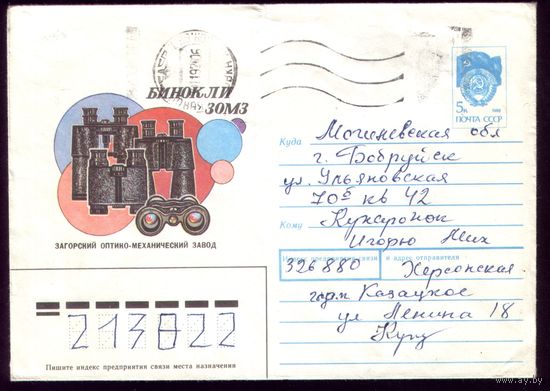 БИНОКЛИ
ЗОМЗ
5к 1988
ПОЧТА СССР
Куда Могилевская обл
г. Бобруйск
ул. Ульяновская
70 кв 42
Кому
Игорю Мих
Индекс предприятия связи и адрес отправителя
326880 Херсонская
Казацкое
ул Ленина 18
ЗАГОРСКИЙ ОПТИКО-МЕХАНИЧЕСКИЙ ЗАВОД
213822
Пишите индекс предприятия связи места назначения
www.ay.by